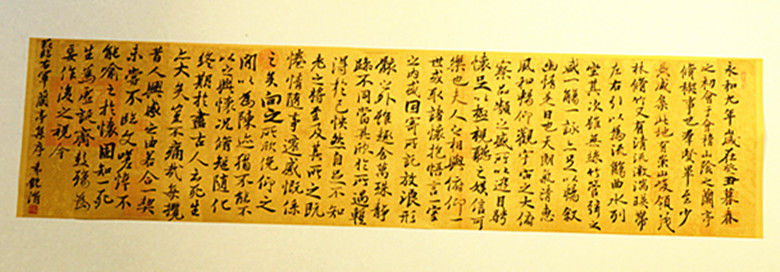 永和九年歲在癸丑暮春
之初會于會稽山陰之蘭亭
脩稧事也羣賢畢至少
長咸集此地有崇山峻領茂
林脩竹又有清流激湍映帶
左右引以為流觴曲水列
坐其次雖無絲竹管弦之
盛一觴一詠亦足以暢敘
幽情是日也天朗氣清惠
風和暢仰觀宇宙之大俯
察品類之盛所以遊目騁
懷足以極視聽之娛信可
樂也夫人之相與俯仰一
世或取諸懷抱悟言一室
之內或因寄所託放浪形
骸之外雖趣舍萬殊靜
躁不同當其欣於所遇輙
得於己怏然自足不知
老之將至及其所之既
惓情隨事遷感慨係
之矣向之所欣俛仰之
間以為陳迹猶不能不
以之興懷況脩短隨化
終期於盡古人云死生
亦大矣豈不痛哉每攬
昔人興感之由若合一契
未嘗不臨文嗟悼不
能喻之於懷固知一死
生為虛誕齊彭殤為
妄作後之視今
臨右軍蘭亭集序